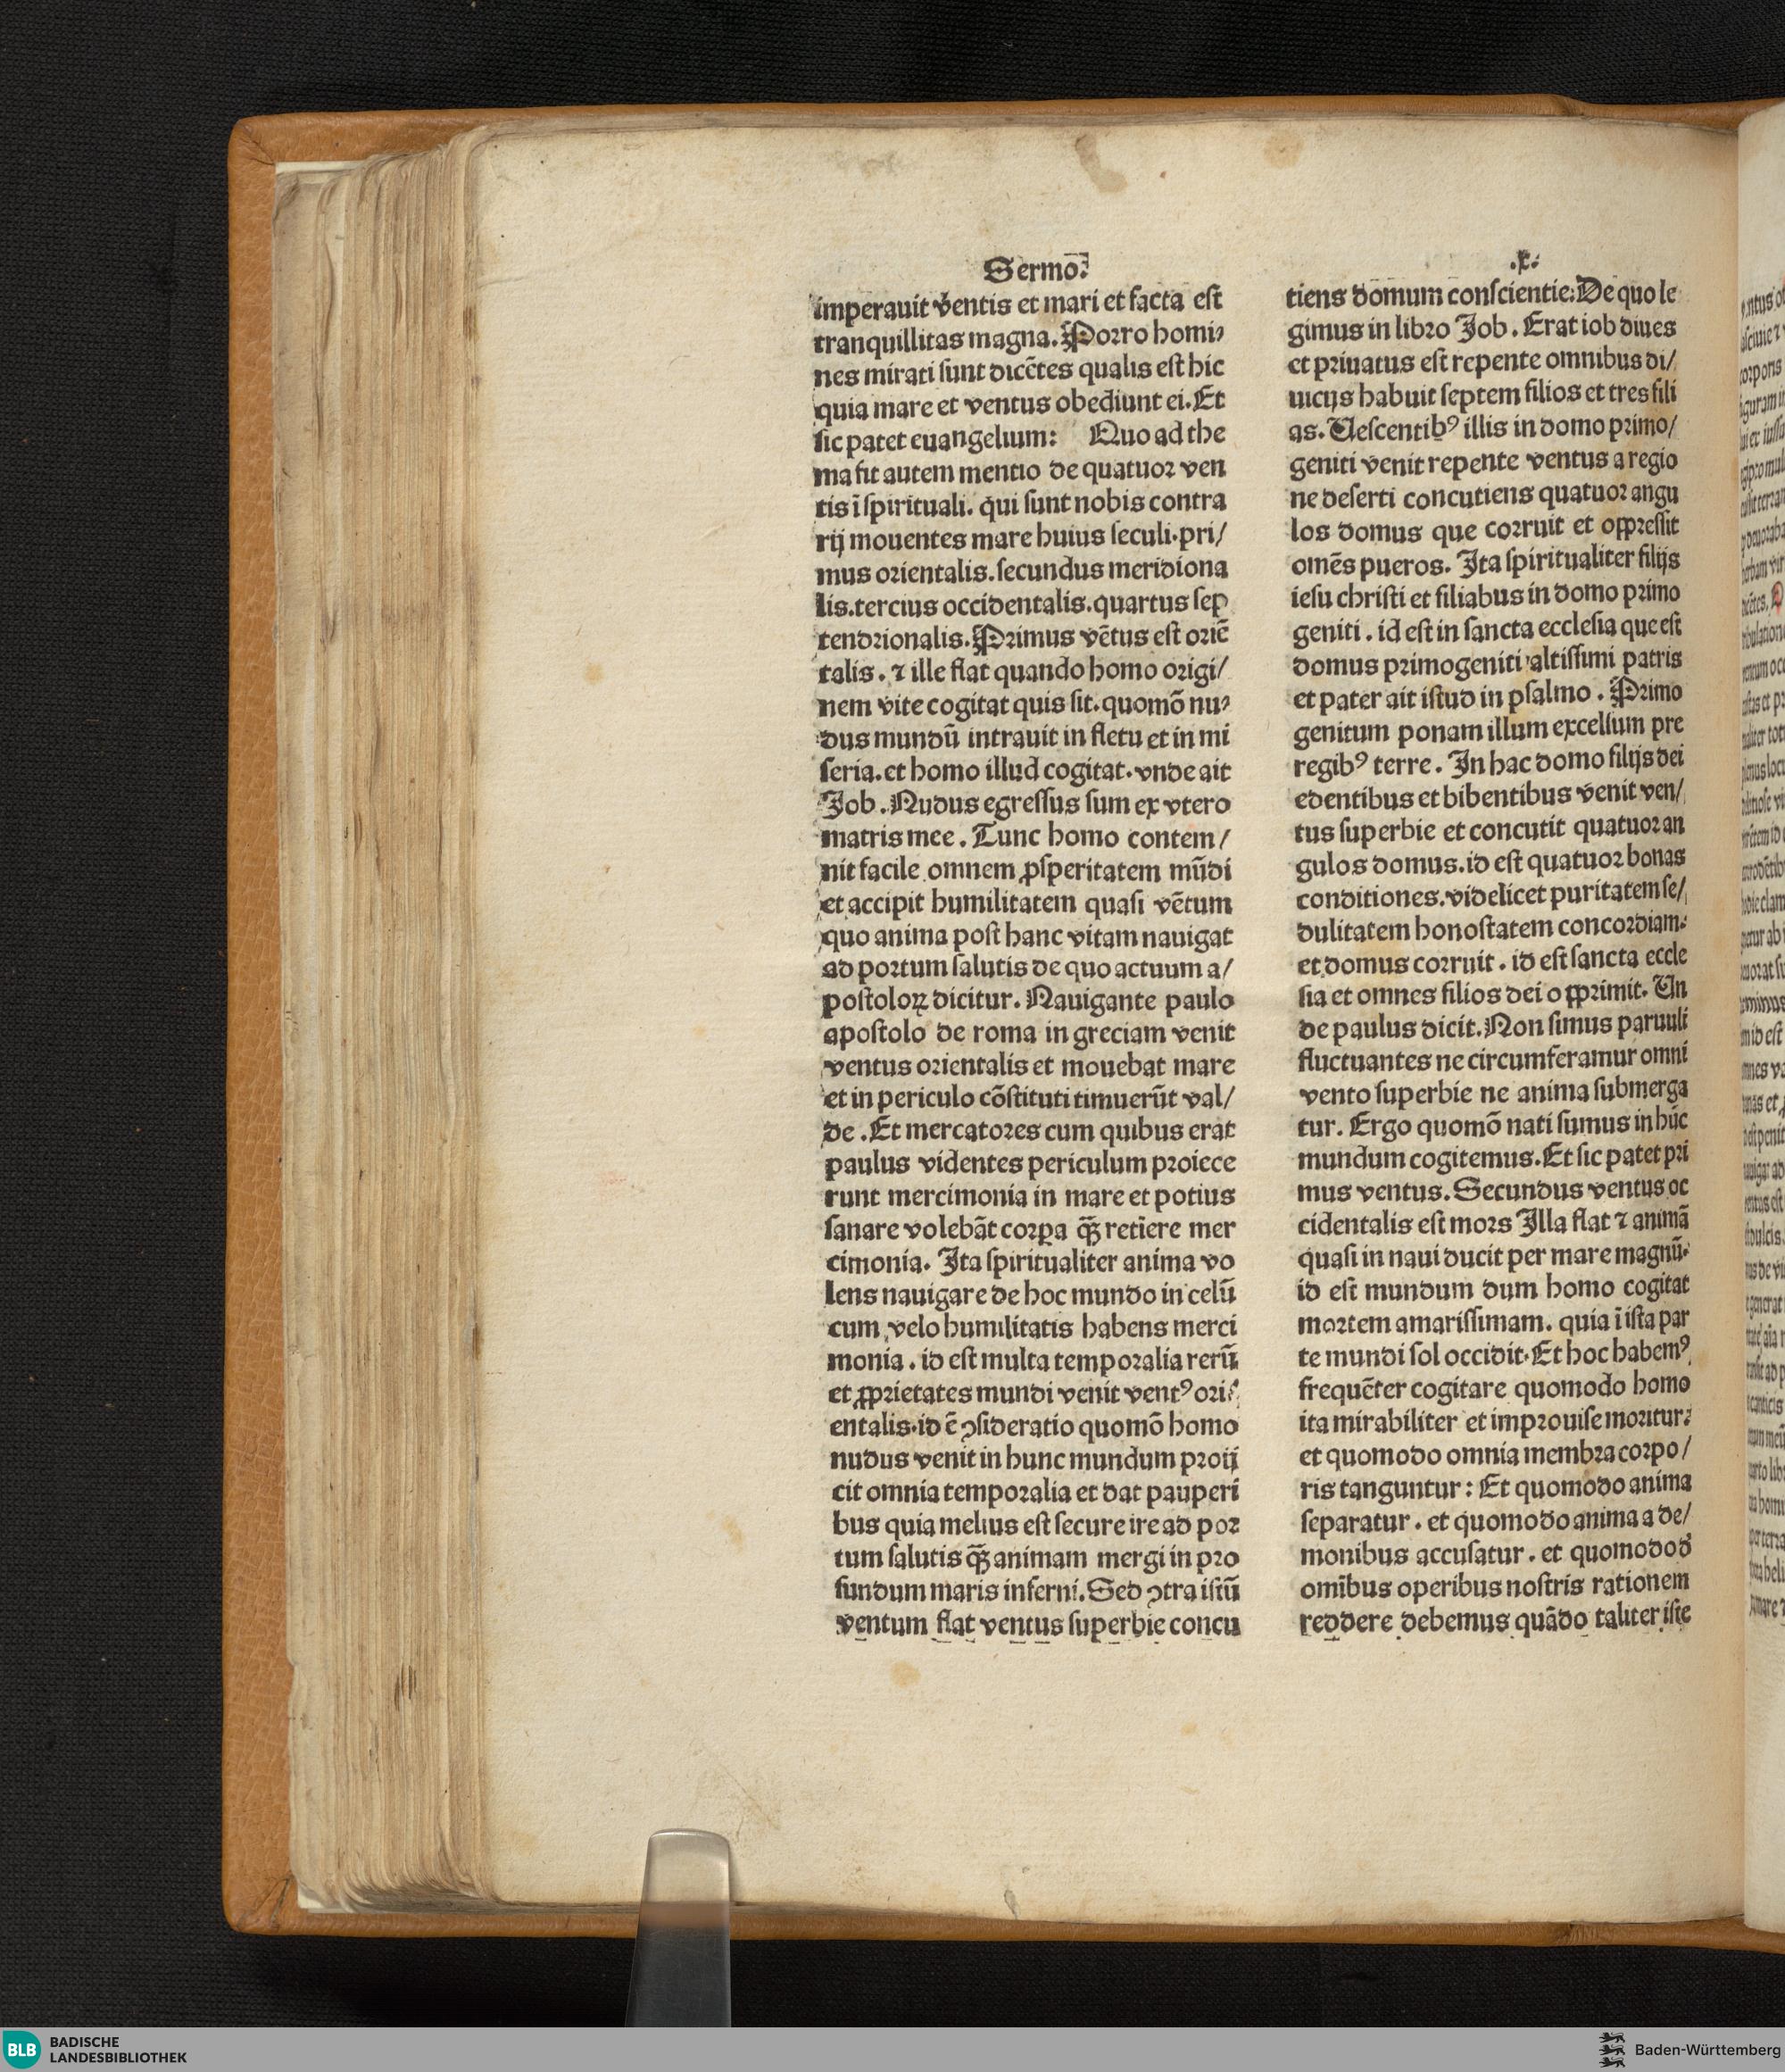 Sermo.
imperauit ventis et mari et facta est
tranquillitas magna. Porro homi/
nes mirati sunt dicētes qualis est hic
quia mare et ventus obediunt ei. Et
sic patet euangelium: Quo ad the
ma fit autem mentio de quatuor ven
tis ī spirituali. qui sunt nobis contra
rij mouentes mare huius seculi. pri/
mus orientalis. secundus meridiona
lis. tercius occidentalis. quartus sep
tendrionalis. Primus vētus est oriē
talis. ⁊ ille flat quando homo origi/
nem vite cogitat quis sit. quomō nu/
dus mundū intrauit in fletu et in mi
seria. et homo illud cogitat. vnde ait
Job. Nudus egressus sum ex vtero
matris mee. Tunc homo contem/
nit facile omnem ꝓsperitatem mūdi
et accipit humilitatem quasi vētum
quo anima post hanc vitam nauigat
ad portum salutis de quo actuum a/
postoloꝝ dicitur. Nauigante paulo
apostolo de roma in greciam venit
ventus orientalis et mouebat mare
et in periculo cōstituti timuerūt val/
de. Et mercatores cum quibus erat
paulus videntes periculum proiece
runt mercimonia in mare et potius
sanare volebāt corpa q̄ꝫ retiere mer
cimonia. Ita spiritualiter anima vo
lens nauigare de hoc mundo in celū
cum velo humilitatis habens merci
monia. id est multa temporalia rerū
et ꝓprietates mundi venit ventꝰ ori/
entalis. id ē ↄsideratio quomō homo
nudus venit in hunc mundum proij
cit omnia temporalia et dat pauperi
bus quia melius est secure ire ad por
tum salutis q̄ꝫ animam mergi in pro
fundum maris inferni. Sed ↄtra istū
ventum flat ventus superbie concu
.x.
tiens domum conscientie. De quo le
gimus in libro Job. Erat iob diues
et priuatus est repente omnibus di/
uicijs habuit septem filios et tres fili
as. Uescentibꝰ illis in domo primo/
geniti venit repente ventus a regio
ne deserti concutiens quatuor angu
los domus que corruit et oppressit
omēs pueros. Ita spiritualiter filijs
iesu christi et filiabus in domo primo
geniti. id est in sancta ecclesia que est
domus primogeniti altissimi patris
et pater ait istud in psalmo. Primo
genitum ponam illum excelsum pre
regibꝰ terre. In hac domo filijs dei
edentibus et bibentibus venit ven/
tus superbie et concutit quatuor an
gulos domus. id est quatuor bonas
conditiones. videlicet puritatem se/
dulitatem honostatem concordiam.
et domus corruit. id est sancta eccle
sia et omnes filios dei opprimit. Un
de paulus dicit. Non simus paruuli
fluctuantes ne circumferamur omni
vento superbie ne anima submerga
tur. Ergo quomō nati sumus in hūc
mundum cogitemus. Et sic patet pri
mus ventus. Secundus ventus oc
cidentalis est mors Illa flat ⁊ animā
quasi in naui ducit per mare magnū.
id est mundum dum homo cogitat
mortem amarissimam. quia ī ista par
te mundi sol occidit. Et hoc habemꝰ
frequēter cogitare quomodo homo
ita mirabiliter et improuise moritur.
et quomodo omnia membra corpo/
ris tanguntur: Et quomodo anima
separatur. et quomodo anima a de/
monibus accusatur. et quomodo d̓
omībus operibus nostris rationem
reddere debemus quādo taliter iste
BLB BADISCHE
LANDESBIBLIOTHEK
Baden-Württemberg